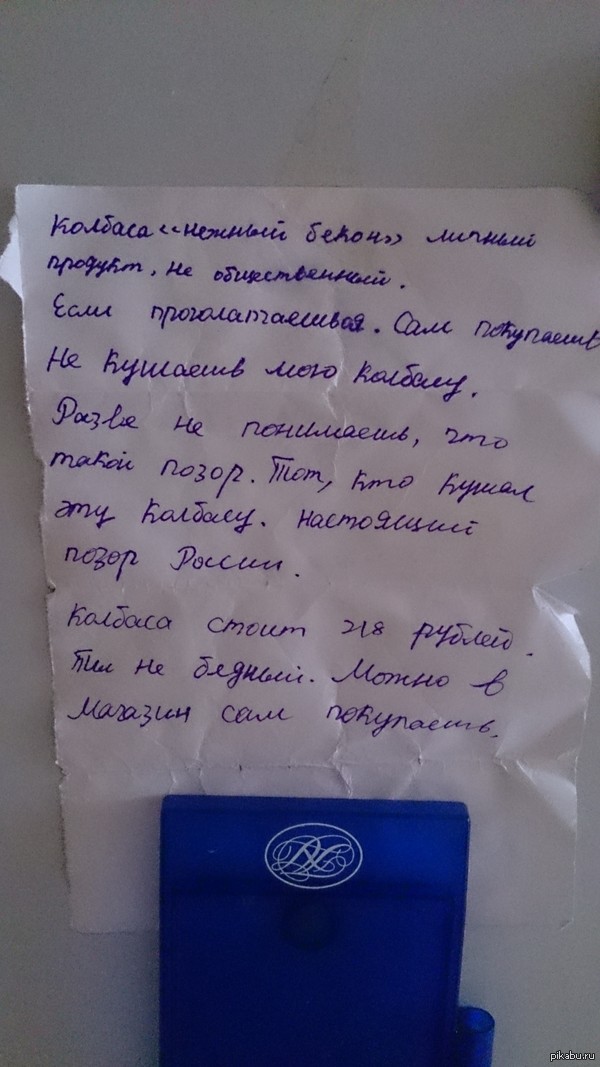 Колбаса «нежный бекон» личный
продукт, не общественный.
Если проголатчаешься. Сам покупаешь
Не кушаешь мою колбасу.
Разве не понимаешь, что
такой позор. Тот, кто кушал
эту колбасу. настоящий
позор России.
Колбаса стоит 218 рублей.
Ты не бедный. Можно в
магазин сам покупаешь.
pikabu.ru